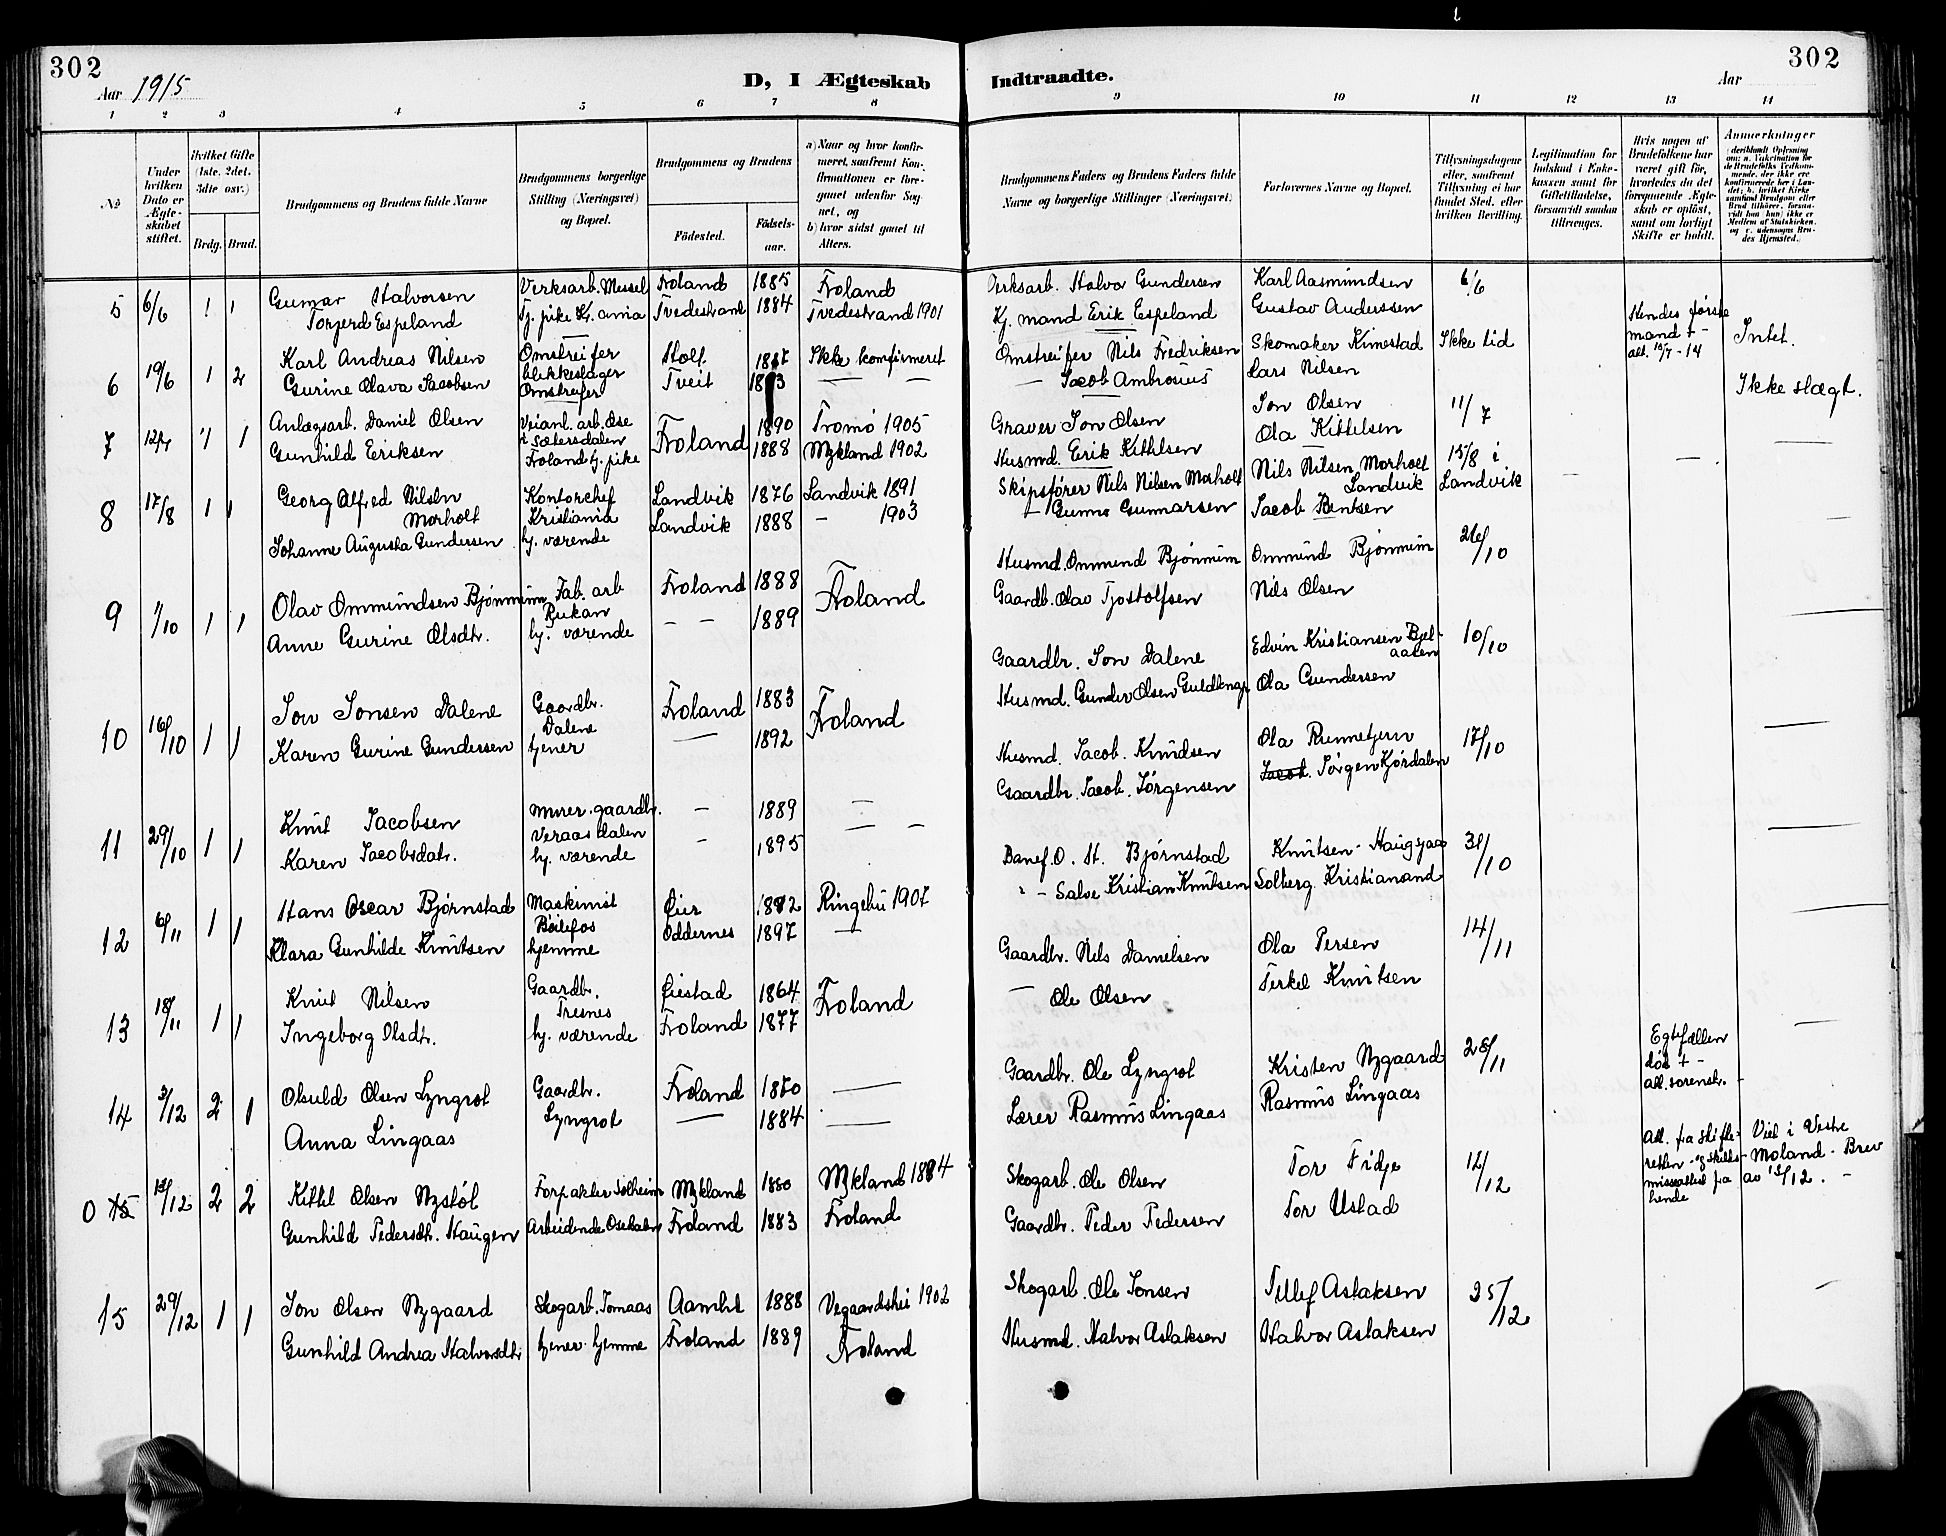 302
Aar 1915
D, I Ægteskab
Indtraadte.
Aar
302
1 2 3 4 5 6 7 8 9 10 11 12 13 14
№
Under hvilken Dato er Ægteskabet stiftet.
Hvilket Gifte (1ste, 2det, 3dte osv.)
Brdg. Brud.
Brudgommens og Brudens fulde Navne
Brudgommens borgerlige Stilling (Næringsvei) og Bopæl.
Brudgommens og Brudens
Fødested.
Fødsels-aar.
a) Naar og hvor konfirmeret, saafremt Konfirmationen er foregaaet udenfor Sognet, og
b) hvor sidst gaaet til Alters.
Brudgommens Faders og Brudens Faders fulde Navne og borgerlige Stillinger (Næringsvei)
Forlovernes Navne og Bopæl.
Tillysningsdagene eller, saafremt Tillysning ei har fundet Sted, efter hvilken Bevilling.
Legitimation for Indskud i Enkekassen samt for Giftetilladelse, forsaavidt saadan tiltrænges.
Hvis nogen af Brudefolkene har været gift før, hvorledes da det foregaaende Ægteskab er opløst, samt om lovligt Skifte er holdt.
Anmerkninger
5 6/6 1 1
Gunnar Halvorsen Verksarb. Messel Froland 1885 Froland Verksarb. Halvor Gundersen Karl Aasmundsen 6/6
Torjerd Espeland Tj. pike Kr. ania Tvedestrand 1884 Tvedestrand 1901 Kj. mand Erik Espeland Gustav Anderssen
6 19/6 1 2
Karl Andreas Nilsen Omstreifer blikkeslager Ikke komfirmeret Omstreifer Nils Fredriksen Skomaker Kimestad Ikke tid Hendes første mand + - att. 15/7-14 Intet.
Gurine Olava Jacobsen Omstreifer Tveit — — — Jacob Ambrosius Lars Nilsen
7 12/7 1 1
Anlægsarb. Daniel Olsen Veianl. arb. Ose i Sætersdalen Froland 1890 Tromø 1905 Graver Jon Olsen Jon Olsen 11/7 Ikke slægt.
Gunhild Eriksen Froland tj. pike 1888 Mykland 1902 Husmd. Erik Kittilsen Ola Kittelsen
8 17/8 1 1
Georg Alfred Nilsen Morholt Kontorchef Kristiania Landvik 1876 Landvik 1891 Skipsfører Nils Nilsen Morholt Nils Nilsen Morholt Landvik 15/8 i Landvik
Johanne Augusta Gundersen hj. værende Landvik 1888 — 1903 — Gunnar Gunnarsen Jacob Bentsen
9 1/10 1 1
Olav Ommundsen Bjønnum Fab. arb Rukan Froland 1888 Froland Husmd. Ommund Bjønnum Ommund Bjønnum 26/10
Anne Gurine Olsdtr. hj. værende — — 1889 Gaardb. Olav Tjostolfsen Nils Olsen
10 16/10 1 1
Jon Jonsen Dalene Gaardbr. Dalene Froland 1883 Froland Gaardbr. Jon Dalene Edvin Kristiansen 10/10
Karen Gurine Gundersen tjener — 1892 Husmd. Gunder Olsen Guldknap Ola Gundersen
11 29/10 1 1
Knut Jacobsen murer. gaardbr. Veraasdalen — 1889 — Husmd. Jacob. Knudsen Ola Runnetjern 17/10
Karen Jacobsdatr. hj. værende — 1895 — — Gaardbr. Jacob. Jørgensen Jacob. Jørgen Hjørdalen
12 6/11 1 1
Hans Oscar Bjørnstad Maskinist Bøilefos Øier Ringebu 1907 Banef. O. H. Bjørnstad Knutsen - Haugsjaa 31/10
Klara Gunhilde Knutsen hjemme Oddernes 1897 — " - Salve Kristian Knutsen Solberg. Kristianand
13 18/11 1 1
Knut Nilsen Gaardbr. Tresnes Øiestad 1864 Froland Gaardbr. Nils Danielsen Ola Persen 14/11
Ingeborg Olsdtr. hj. værende Froland 1877 — Ole Olsen Terkel Knutsen
14 3/12 2 1
Osuld Olsen Lyngrot Gaardbr. Lyngrot Froland — Gaardbr. Ole Lyngrot Kristen Nygaard 28/11 Egtefællen død + - att. sorenskr. -
Anna Lingaas — 1884 — Lærer Rasmus Lingaas Rasmus Lingaas
0 15 /12 2 2
Kittil Olsen Nystøl Forpakter Solheim Mykland 1880 Mykland Skogarb. Ole Olsen Tor Fidje 12/12 Att. fra skifteretten - og skilsmisseattest fra hende Viet i Vestre Moland - Brev av /12. -
Gunhild Pedersdtr. Haugen Arbeidende Osedalen Froland 1883 Froland Gaardbr. Peder Pedersen Tor Ustad
15 29/12 1 1
Jon Olsen Nygaard Skogarb. Tomaas Aamli 1888 Vegaardshei 1902 Skogarb. Ole Jonsen Tellef Aslaksen 25/12
Gunhild Andrea Halvorsdtr tjener hjemme Froland 1889 Froland Husmd. Halvor Aslaksen Halvor Aslaksen